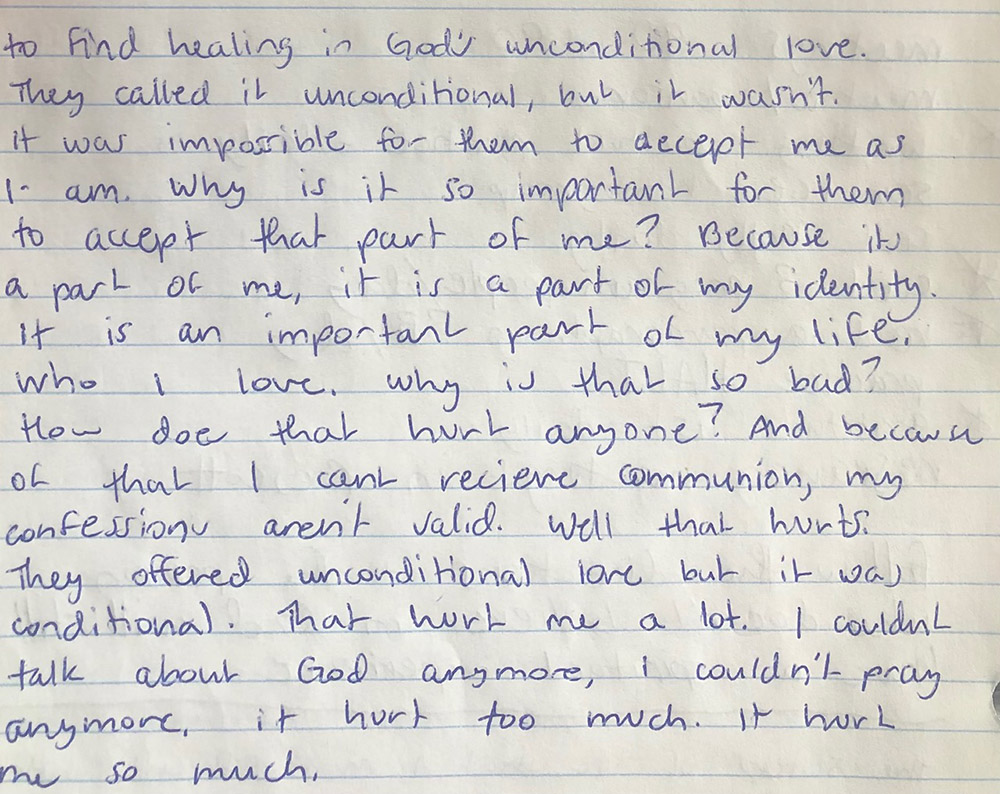 to find healing in God's unconditional love.
They called it unconditional, but it wasn't.
it was impossible for them to accept me as
I am. Why is it so important for them
to accept that part of me? Because its
a part of me, it is a part of my identity.
It is an important part of my life.
Who i love. Why is that so bad?
How doe that hurt anyone? And because
of that I cant recieve communion, my
confessions aren't valid. Well that hurts.
They offered unconditional love but it was
conditional. That hurt me a lot. I couldnt
talk about God anymore, i couldn't pray
anymore, it hurt too much. It hurt
me so much.